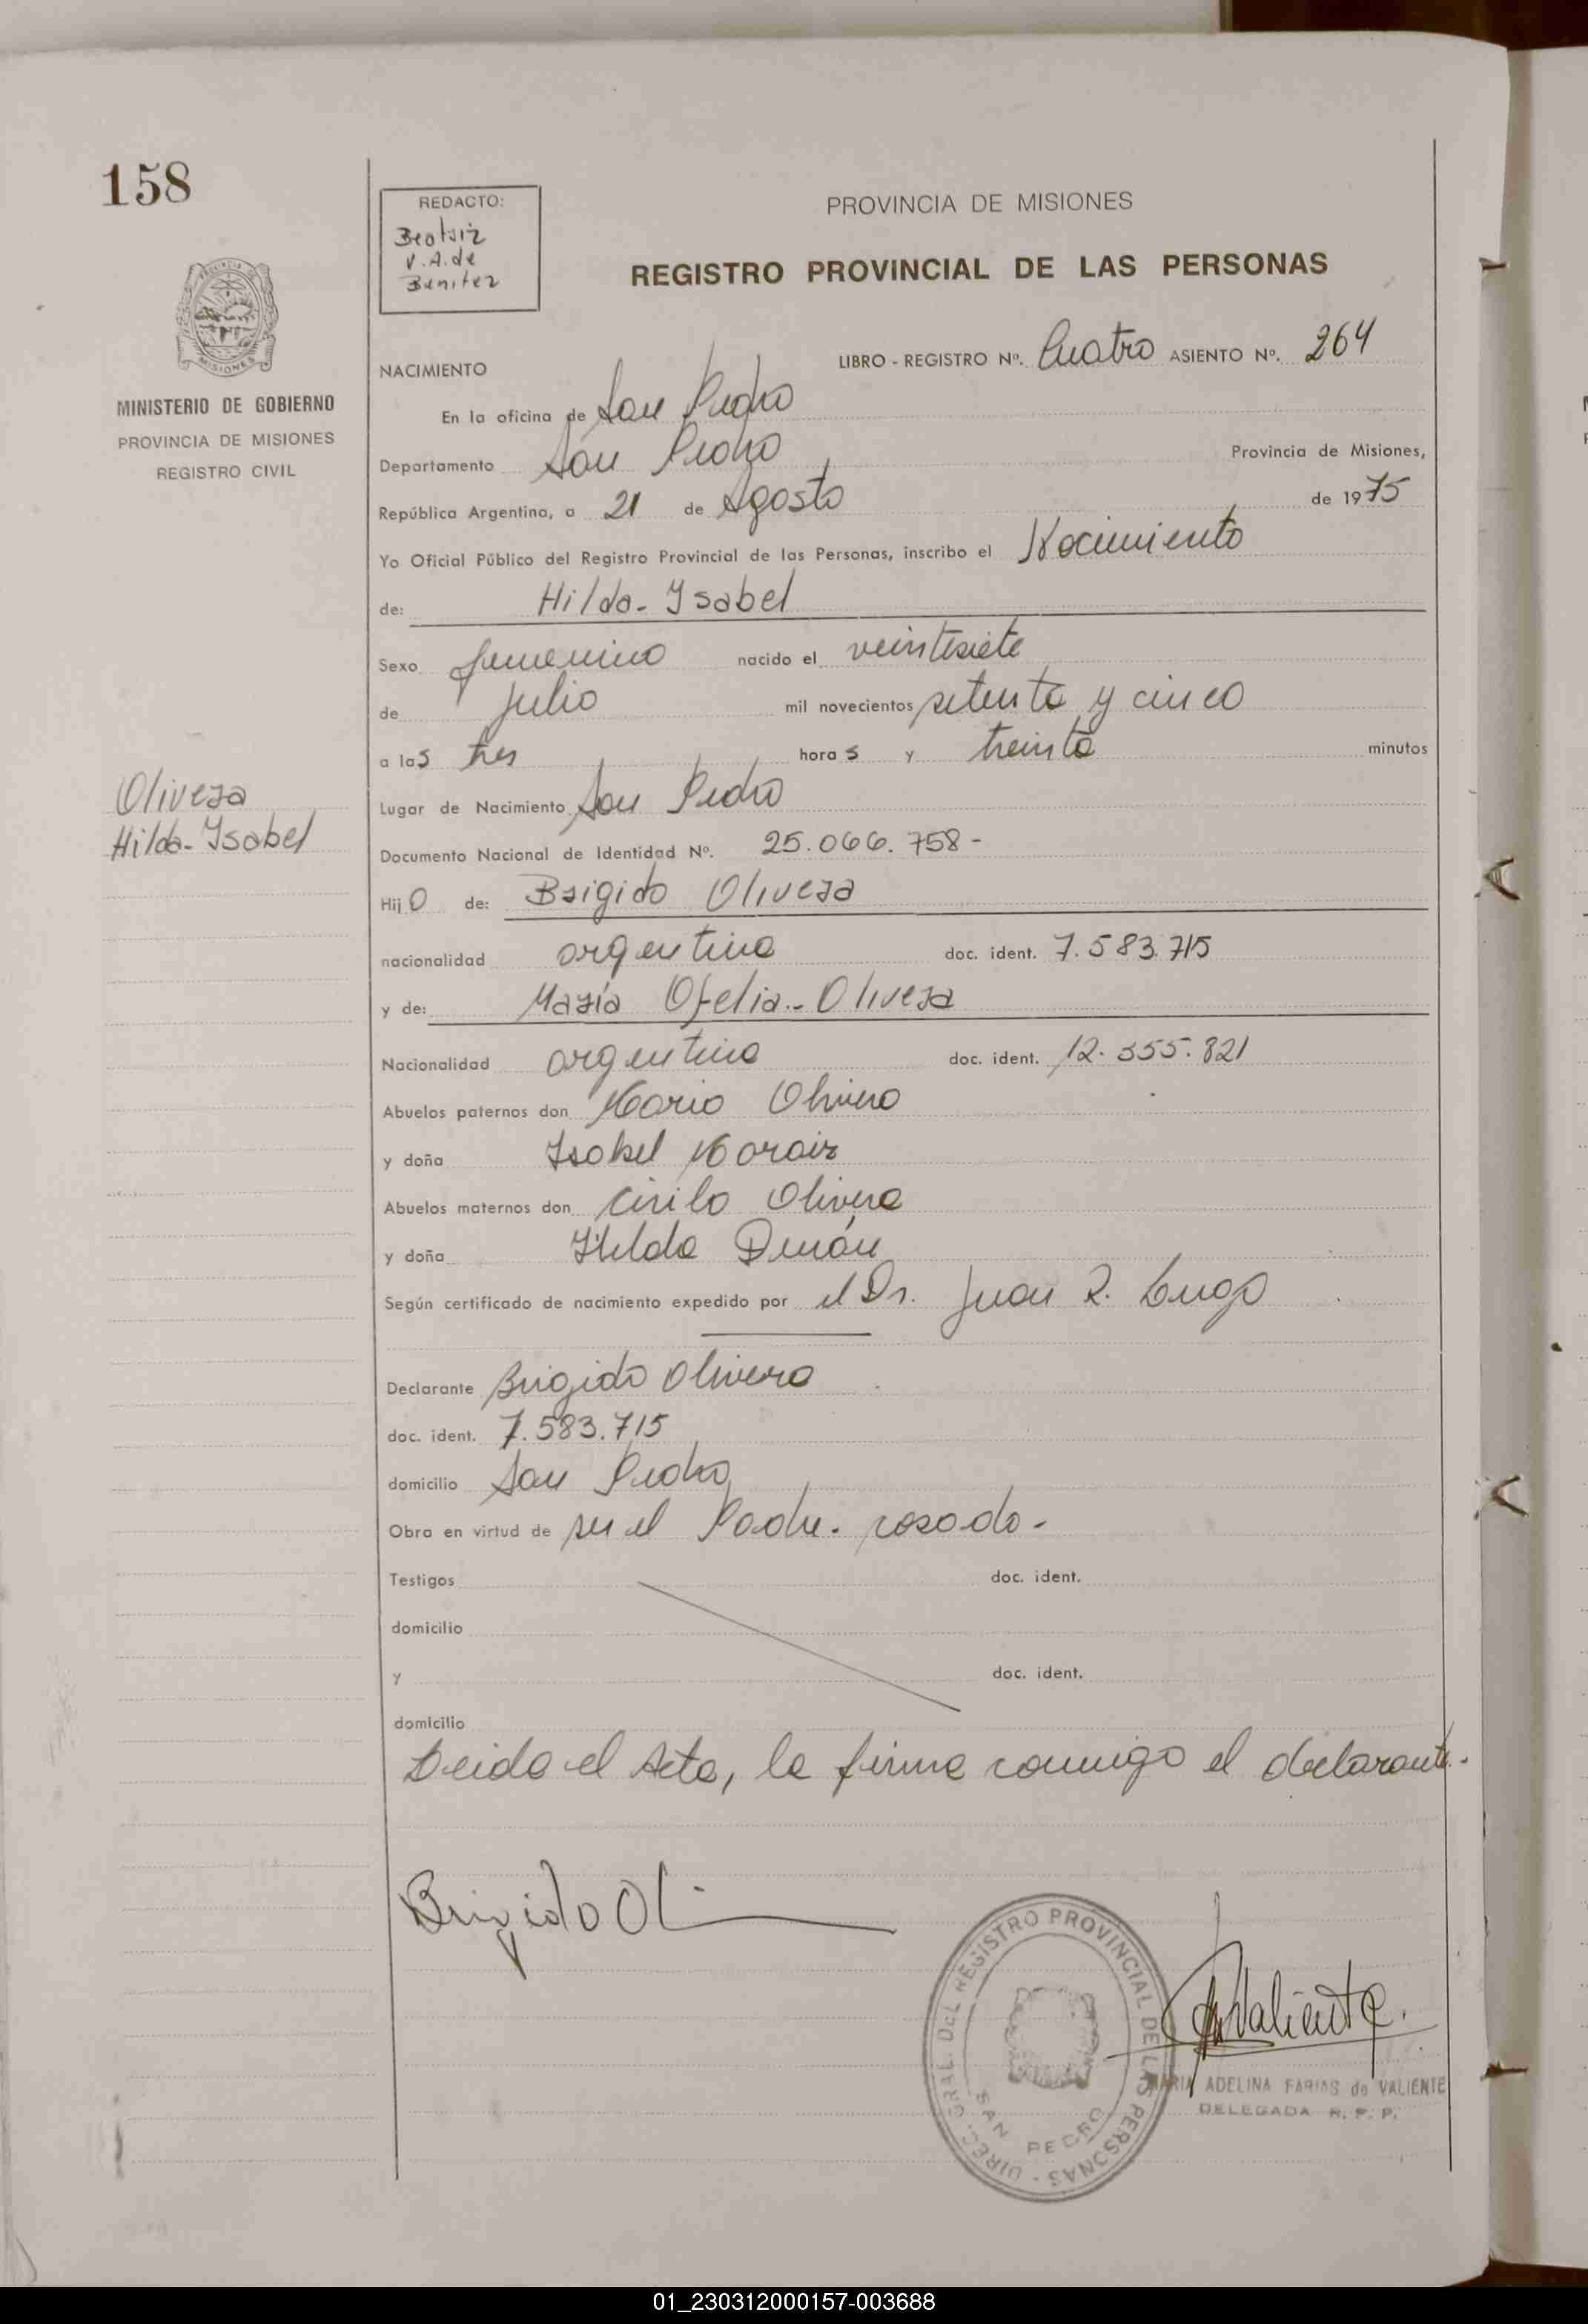 158
REDACTO:
Beatriz
V. A. de
Benitez
PROVINCIA DE MISIONES
REGISTRO PROVINCIAL DE LAS PERSONAS
MISIONES
MINISTERIO DE GOBIERNO
PROVINCIA DE MISIONES
REGISTRO CIVIL
NACIMIENTO LIBRO - REGISTRO Nº. Cuatro ASIENTO Nº. 264
En la oficina de San Pedro
Departamento San Pedro Provincia de Misiones,
República Argentina, a 21 de Agosto de 1975
Yo Oficial Público del Registro Provincial de las Personas, inscribo el Nacimiento
de: Hilda-Ysabel
Sexo femenino nacido el veintesiete
de Julio mil novecientos setenta y cinco
a las tres horas y treinta minutos
Olivera
Hilda-Ysabel
Lugar de Nacimiento San Pedro
Documento Nacional de Identidad Nº. 25.066.758-
Hija de: Brigido Olivera
nacionalidad argentina doc. ident. 7.583.715
y de: María Ofelia-Olivera
Nacionalidad argentina doc. ident. 12.355.821
Abuelos paternos don Mario Olivera
y doña Isabel Moraiz
Abuelos maternos don Cirilo Olivera
y doña Hilda
Según certificado de nacimiento expedido por el Dr. Juan R. Lugo
Declarante Brigido Olivera
doc. ident. 7.583.715
domicilio San Pedro
Obra en virtud de ser el Padre. casado-
Testigos doc. ident.
domicilio
y doc. ident.
domicilio
Leida el Acta, la firma conmigo el declarante.-
Brigido Ol
DIREC. GRAL. DEL REGISTRO PROVINCIAL DE LAS PERSONAS -
SAN PEDRO
Valiente.
MARIA ADELINA FARIAS de VALIENTE
DELEGADA R. P. P.
01_230312000157-003688